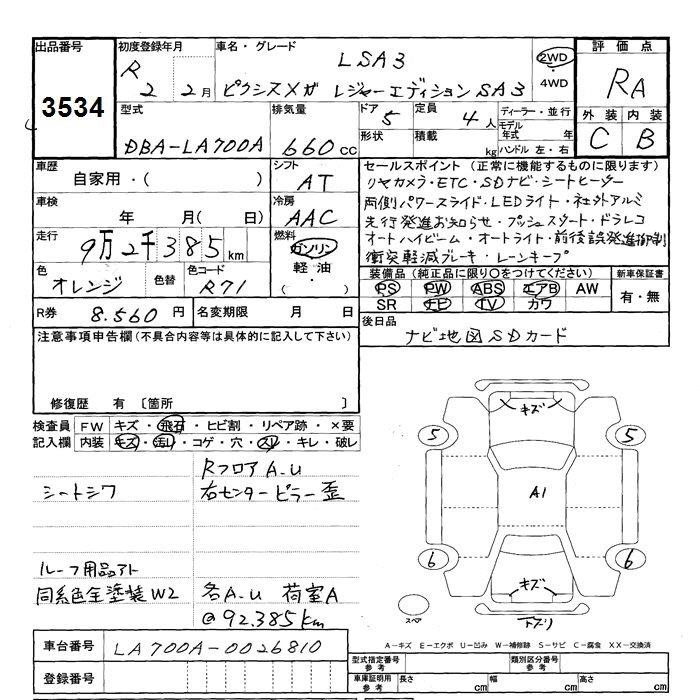 出品番号 3534
初度登録年月 R 2年 2月
車名・グレード LSA3
ピクシスメガ レジャーエディション SA3
2WD・4WD
評価点 RA
外装 C 内装 B
型式 DBA-LA700A
排気量 660cc
ドア 5 形状
定員 4人 積載 kg
ディーラー・並行
モデル年式 年
ハンドル 左・右
車歴 自家用・( )
シフト AT
車検 年 月( 日)
冷房 AAC
走行 9万2千385km
燃料 ガソリン 軽油・( )
色 オレンジ 色替
色コード R71
R券 8.560円
名変期限 月 日
セールスポイント (正常に機能するものに限ります)
リヤカメラ・ETC・SDナビ・シートヒーター
両側パワースライド・LEDライト・社外アルミ
先行発進お知らせ・プッシュスタート・ドラレコ
オートハイビーム・オートライト・前後誤発進抑制
衝突軽減ブレーキ・レーンキープ
装備品 (純正品に限り○をつけてください)
PS PW ABS エアB AW
SR ナビ TV カワ
新車保証書 有・無
後日品 ナビ地図SDカード
注意事項申告欄 (不具合内容等は具体的に記入して下さい)
修復歴 有 〔箇所 〕
検査員 記入欄
FW キズ・飛石・ヒビ割・リペア跡・×要
内装 キズ・汚れ・コゲ・穴・スレ・キレ・破レ
RフロアA.U
シートシワ 右センターピラー歪
ルーフ用品アト
同系色全塗装W2 各A.U 荷室A
@92.385km
キズ
5 5
A1
6 6
キズ
スペア
下ズリ
車台番号 LA700A-0026810
登録番号
A-キズ E-エクボ U-凹み W-補修跡 S-サビ C-腐食 XX-交換済
型式指定番号 参考
類別区分番号 参考
車庫証明用 参考 長さ cm 幅 cm 高さ cm